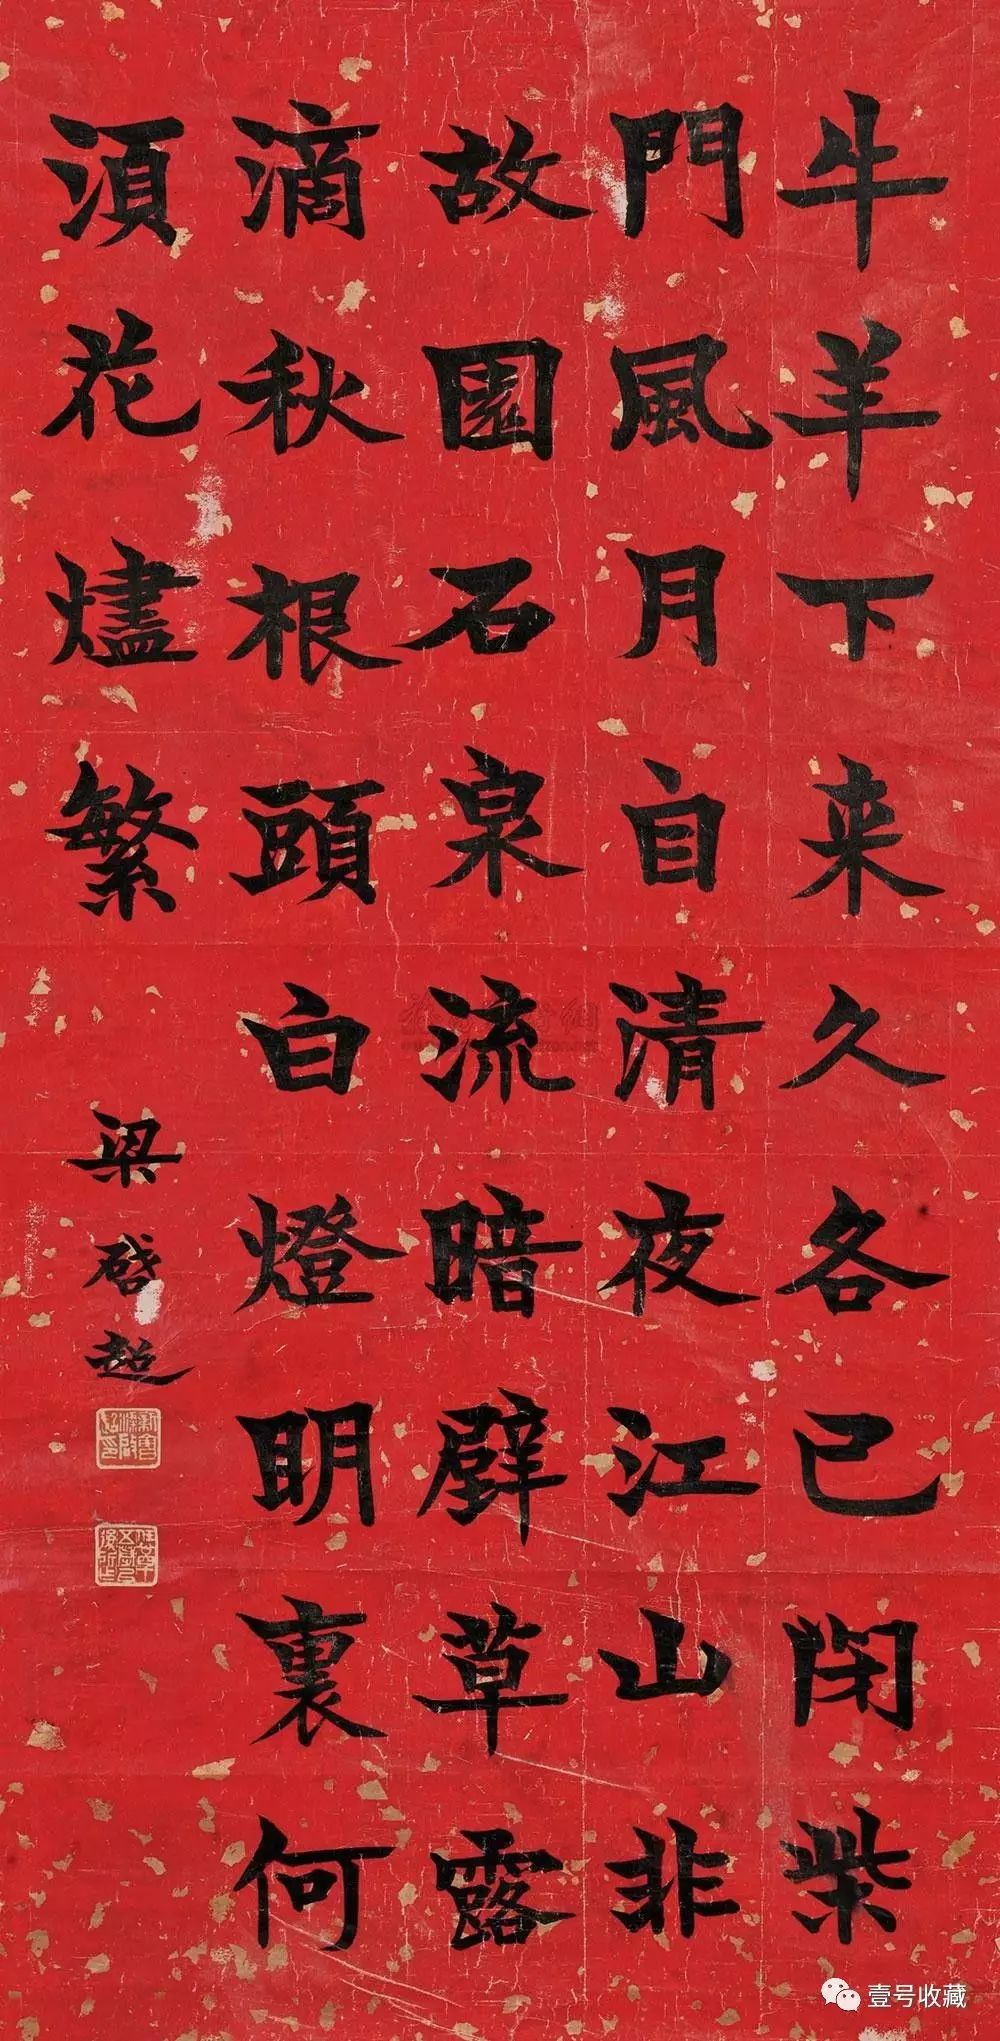 牛羊下来久各已閉柴
門風月自清夜江山非
故園石泉流暗壁草露
滴秋根頭白燈明裏何
須花燼繁
梁啓超
壹号收藏